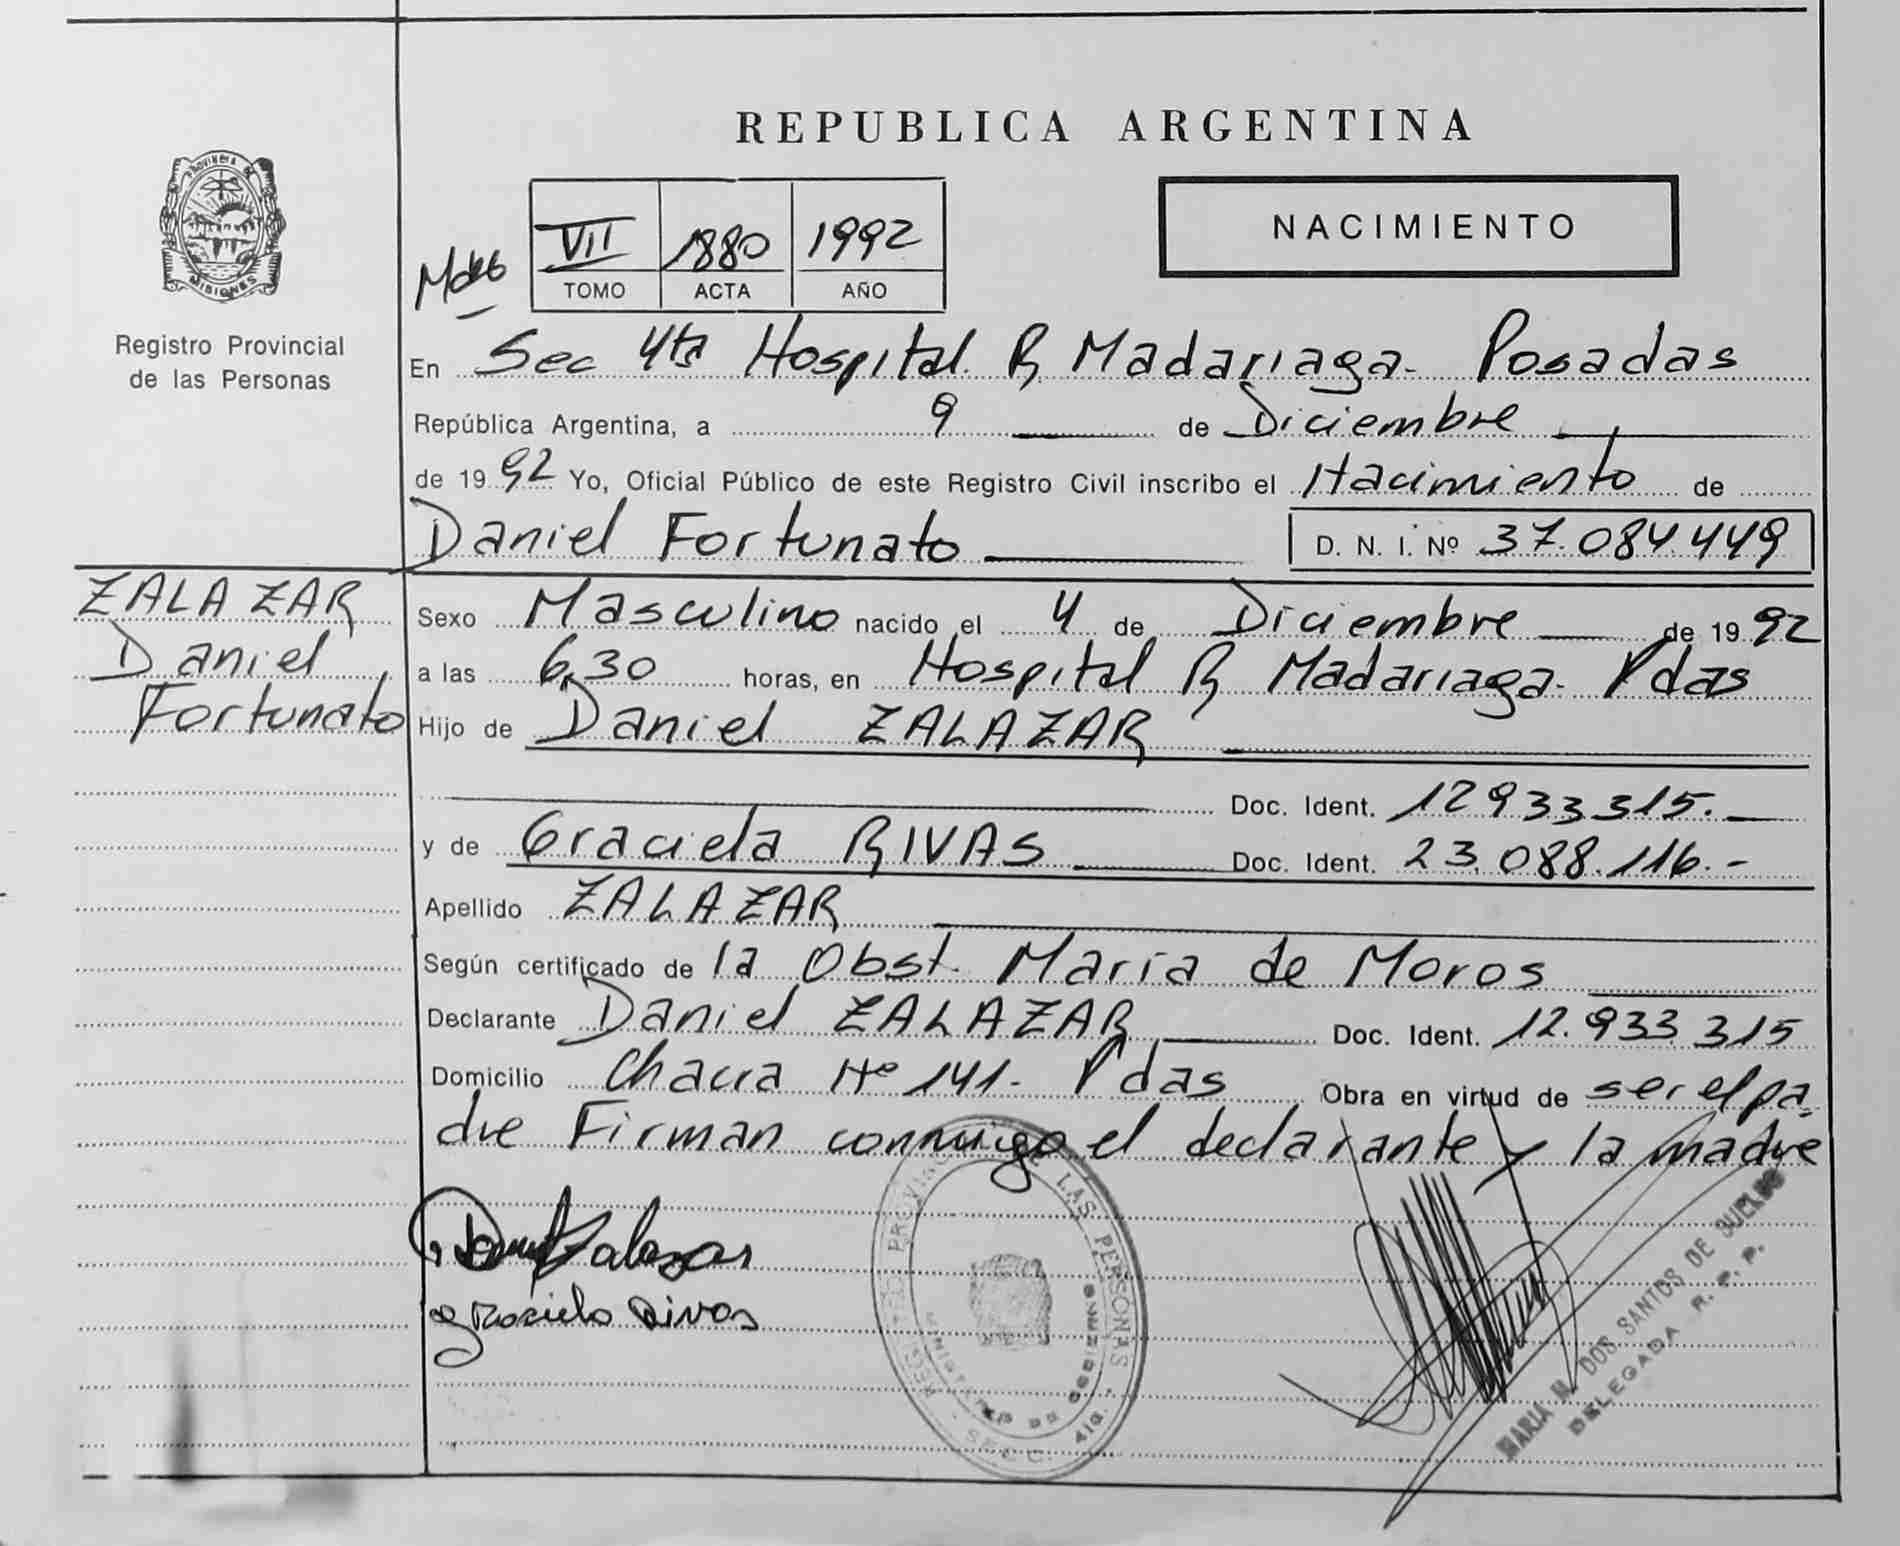 REPUBLICA ARGENTINA
PROVINCIA DE
MISIONES
Registro Provincial
de las Personas
NACIMIENTO
VII 1880 1992
TOMO ACTA AÑO
En Sec 4ta Hospital R Madariaga - Posadas
República Argentina, a 9 de Diciembre
de 1992 Yo, Oficial Público de este Registro Civil inscribo el Nacimiento de
Daniel Fortunato D. N. I. Nº 37.084.449
ZALAZAR
Daniel
Fortunato
Sexo Masculino nacido el 4 de Diciembre de 1992
a las 6,30 horas, en Hospital R Madariaga - Pdas
Hijo de Daniel ZALAZAR
Doc. Ident. 12933.315.-
y de Graciela RIVAS Doc. Ident. 23.088.116.-
Apellido ZALAZAR
Según certificado de la Obst. Maria de Moros
Declarante Daniel ZALAZAR Doc. Ident. 12.933.315
Domicilio Chacra Nº 141- Pdas Obra en virtud de ser el pa
dre Firman conmigo el declarante y la madre
Daniel Zalazar
graciela Rivas
REGISTRO PROVINCIAL DE LAS PERSONAS
MINISTERIO DE GOBIERNO
SECC. 4ta.
MARIA M. DOS SANTOS DE SUELDO
DELEGADA R. P. P.